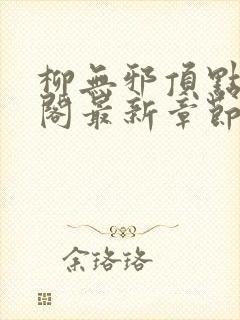 柳無邪頂點
閣最新章節
余珞珞